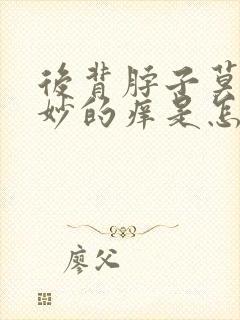 后背脖子莫
妙的痒是怎
廖父